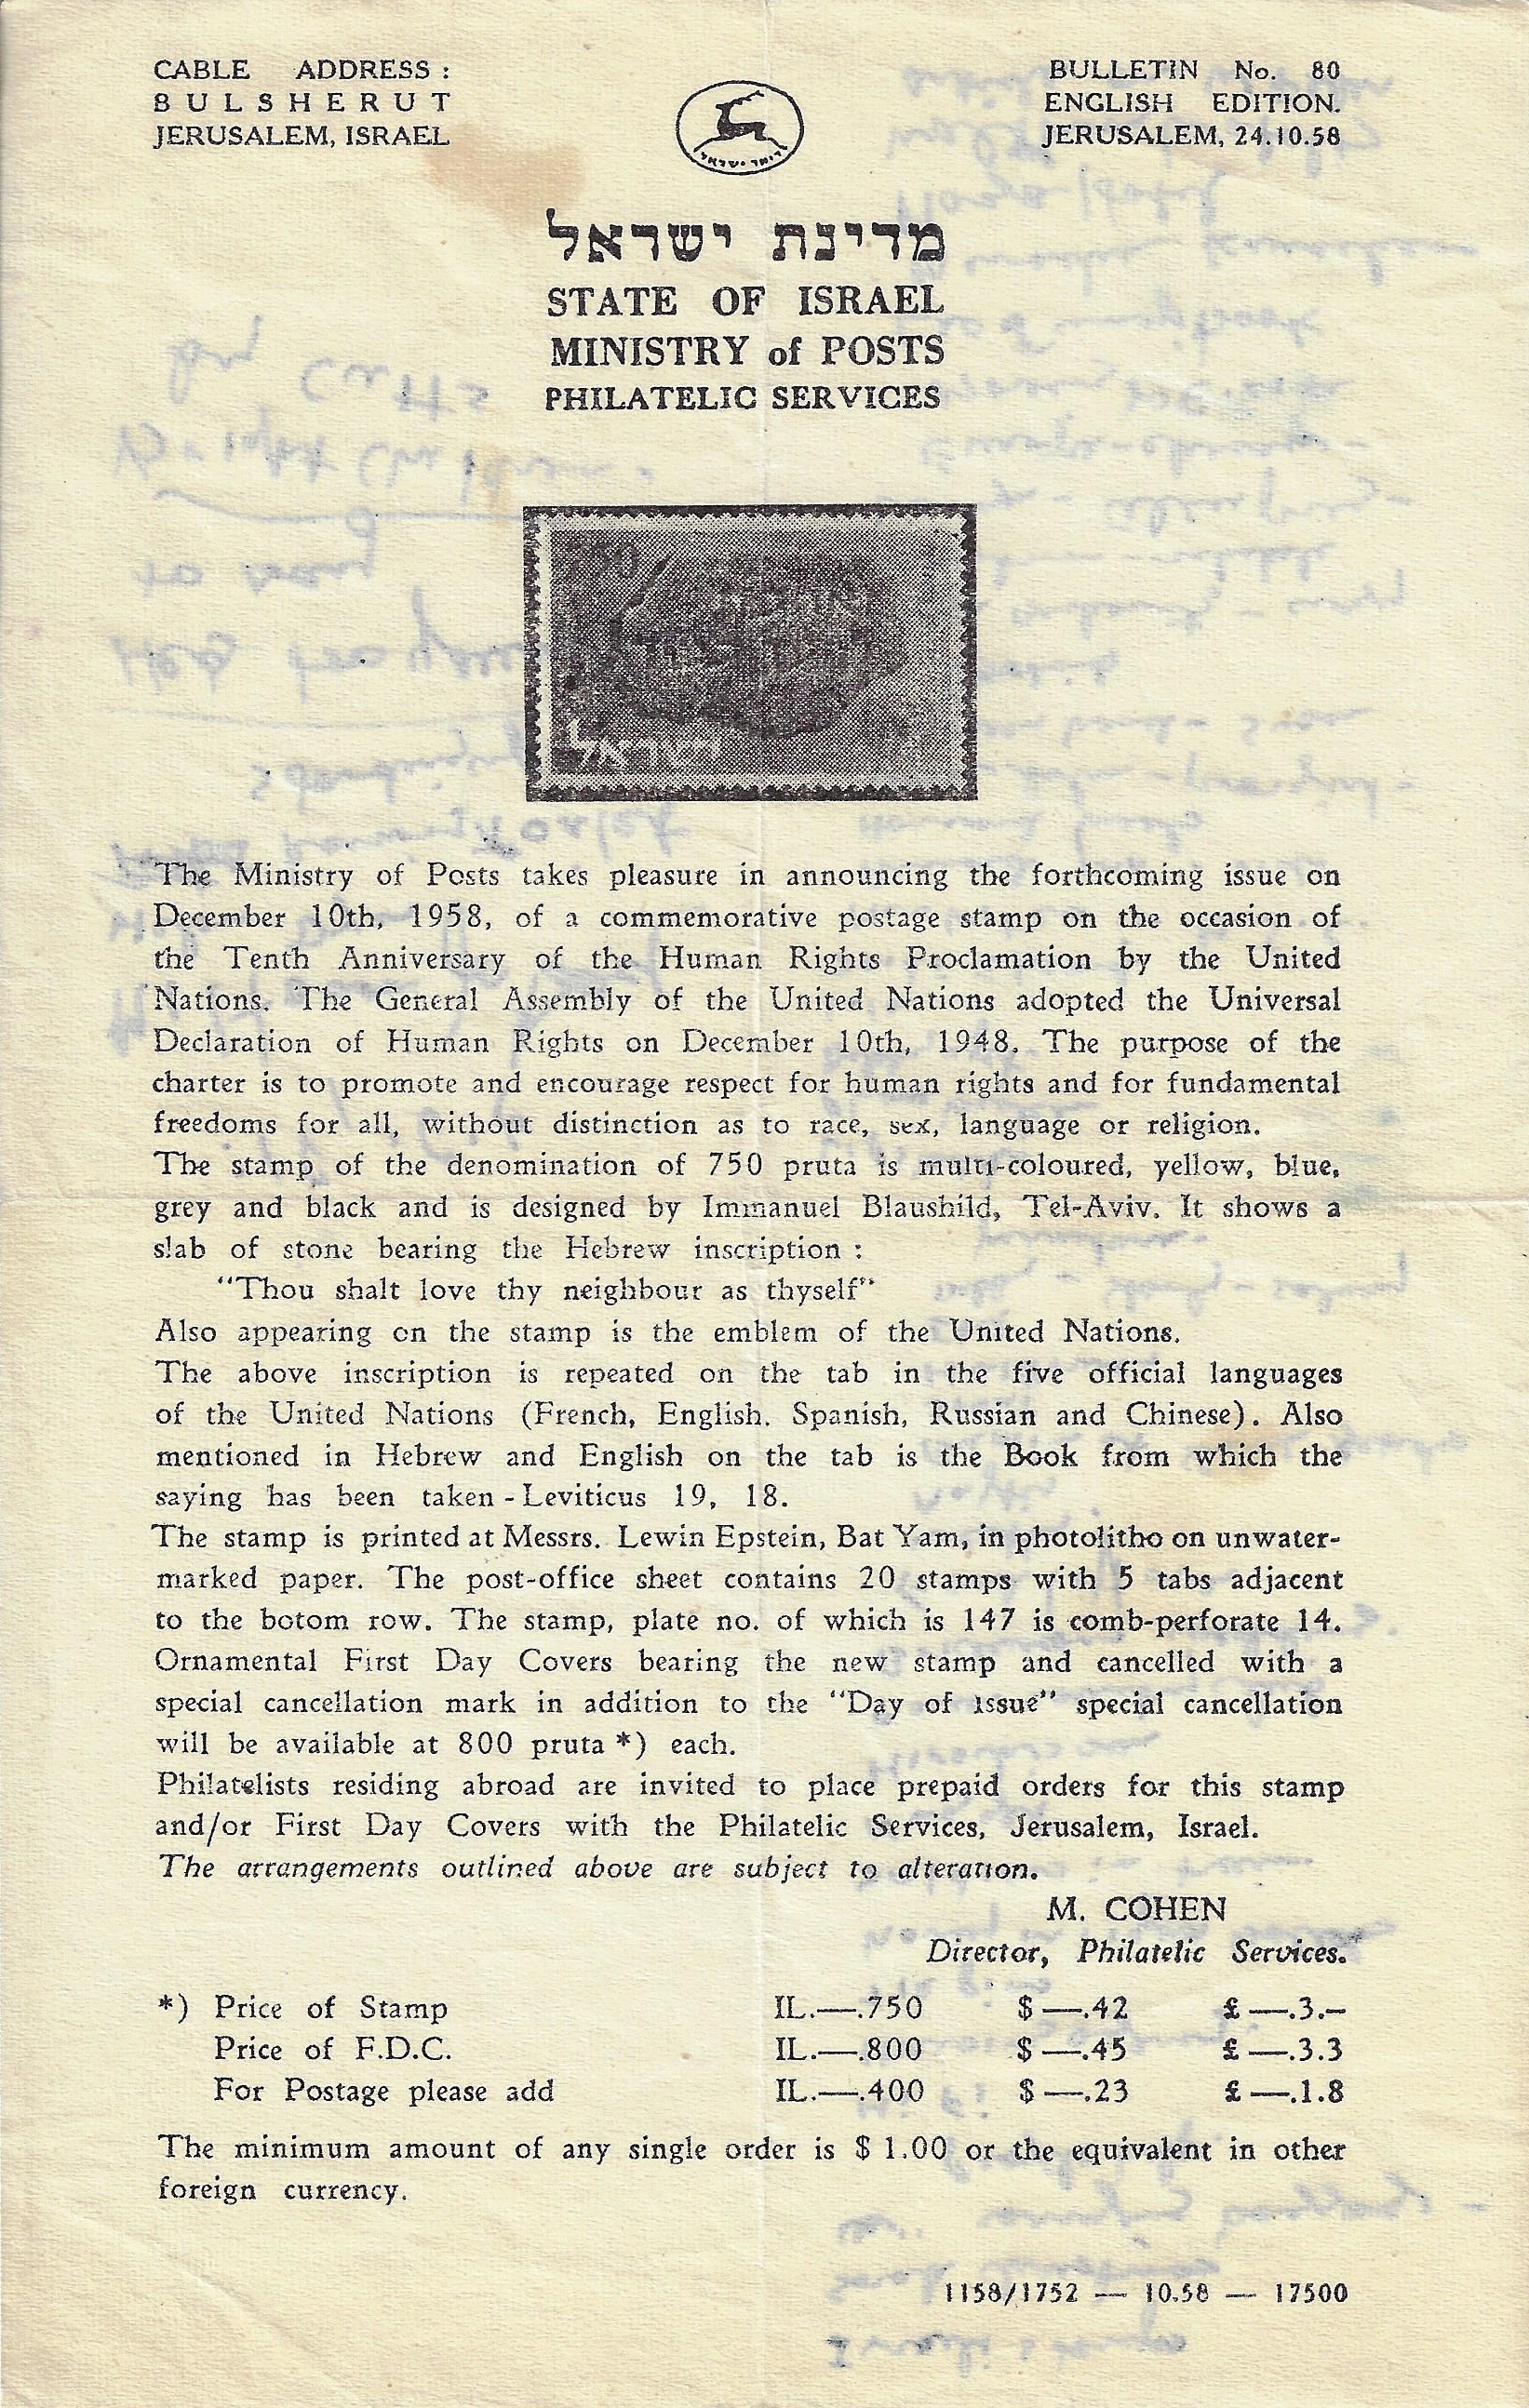 CABLE ADDRESS :
BULSHERUT
JERUSALEM, ISRAEL
BULLETIN No. 80
ENGLISH EDITION.
JERUSALEM, 24.10.58
דואר ישראל
מדינת ישראל
STATE OF ISRAEL
MINISTRY of POSTS
PHILATELIC SERVICES
750
ישראל
The Ministry of Posts takes pleasure in announcing the forthcoming issue on
December 10th, 1958, of a commemorative postage stamp on the occasion of
the Tenth Anniversary of the Human Rights Proclamation by the United
Nations. The General Assembly of the United Nations adopted the Universal
Declaration of Human Rights on December 10th, 1948. The purpose of the
charter is to promote and encourage respect for human rights and for fundamental
freedoms for all, without distinction as to race, sex, language or religion.
The stamp of the denomination of 750 pruta is multi-coloured, yellow, blue,
grey and black and is designed by Immanuel Blaushild, Tel-Aviv. It shows a
slab of stone bearing the Hebrew inscription :
"Thou shalt love thy neighbour as thyself"
Also appearing on the stamp is the emblem of the United Nations.
The above inscription is repeated on the tab in the five official languages
of the United Nations (French, English. Spanish, Russian and Chinese). Also
mentioned in Hebrew and English on the tab is the Book from which the
saying has been taken - Leviticus 19, 18.
The stamp is printed at Messrs. Lewin Epstein, Bat Yam, in photolitho on unwater-
marked paper. The post-office sheet contains 20 stamps with 5 tabs adjacent
to the botom row. The stamp, plate no. of which is 147 is comb-perforate 14.
Ornamental First Day Covers bearing the new stamp and cancelled with a
special cancellation mark in addition to the "Day of issue" special cancellation
will be available at 800 pruta *) each.
Philatelists residing abroad are invited to place prepaid orders for this stamp
and/or First Day Covers with the Philatelic Services, Jerusalem, Israel.
The arrangements outlined above are subject to alteration.
M. COHEN
Director, Philatelic Services.
*) Price of Stamp IL.—.750 $ —.42 £ —.3.–
Price of F.D.C. IL.—.800 $ —.45 £ —.3.3
For Postage please add IL.—.400 $ —.23 £ —.1.8
The minimum amount of any single order is $ 1.00 or the equivalent in other
foreign currency.
1158/1752 — 10.58 — 17500